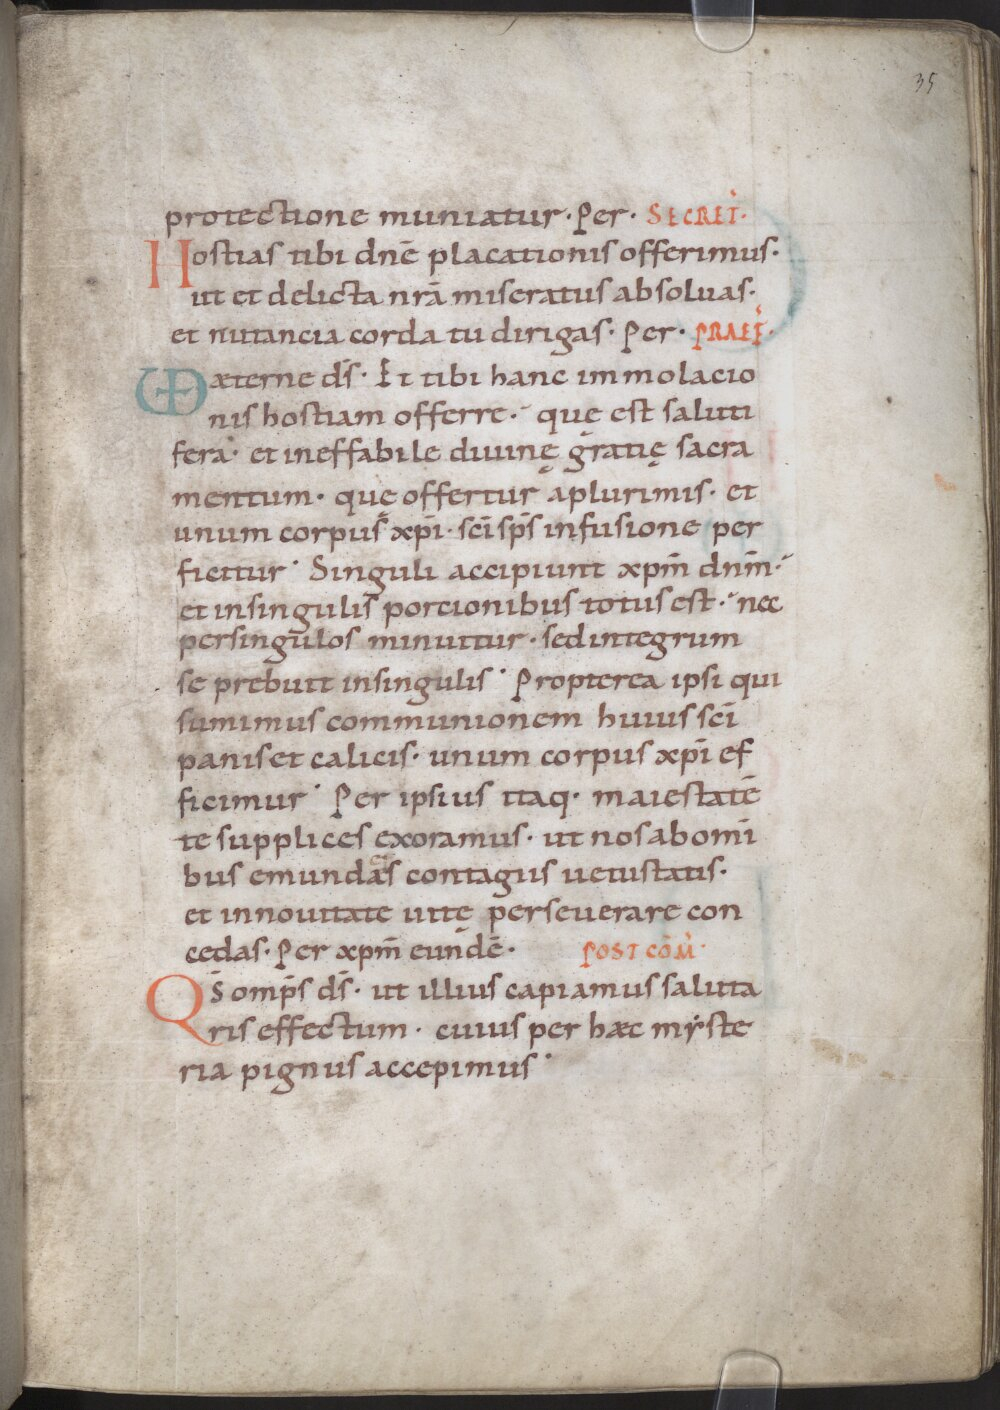 35
protectione muniatur · Per · SECRET̄ ·
Hostias tibi dnē placationis offerimus ·
ut et delicta nr̄a miseratus absoluas ·
et nutancia corda tu dirigas · Per · PRAEF̄ ·
VD aeterne ds̄ · Et tibi hanc immolacio
nis hostiam offerre · quę est saluti
fera · et ineffabile diuinę gratię sacra
mentum · quę offertur aplurimis · et
unum corpus xp̄i · sc̄i sp̄s infusione per
ficitur · Singuli accipiunt xpm̄ dnm̄ ·
et insingulis porcionibus totus est · nec
persingulos minuitur · sed integrum
se prebuit insingulis · Propterea ipsi qui
sumimus communionem huius sc̄i
panis et calicis · unum corpus xp̄i ef
ficimur · Per ipsius itaq · maiestatē
te supplices exoramus · ut nos abomī
bus emundas contagiis uetustatis ·
et innouitate uitę perseuerare con
cedas · Per xpm̄ eundē · POST COM̄ ·
Qs̄ omp̄s ds̄ · ut illius capiamus saluta
ris effectum · cuius per haec myste
ria pignus accepimus ·